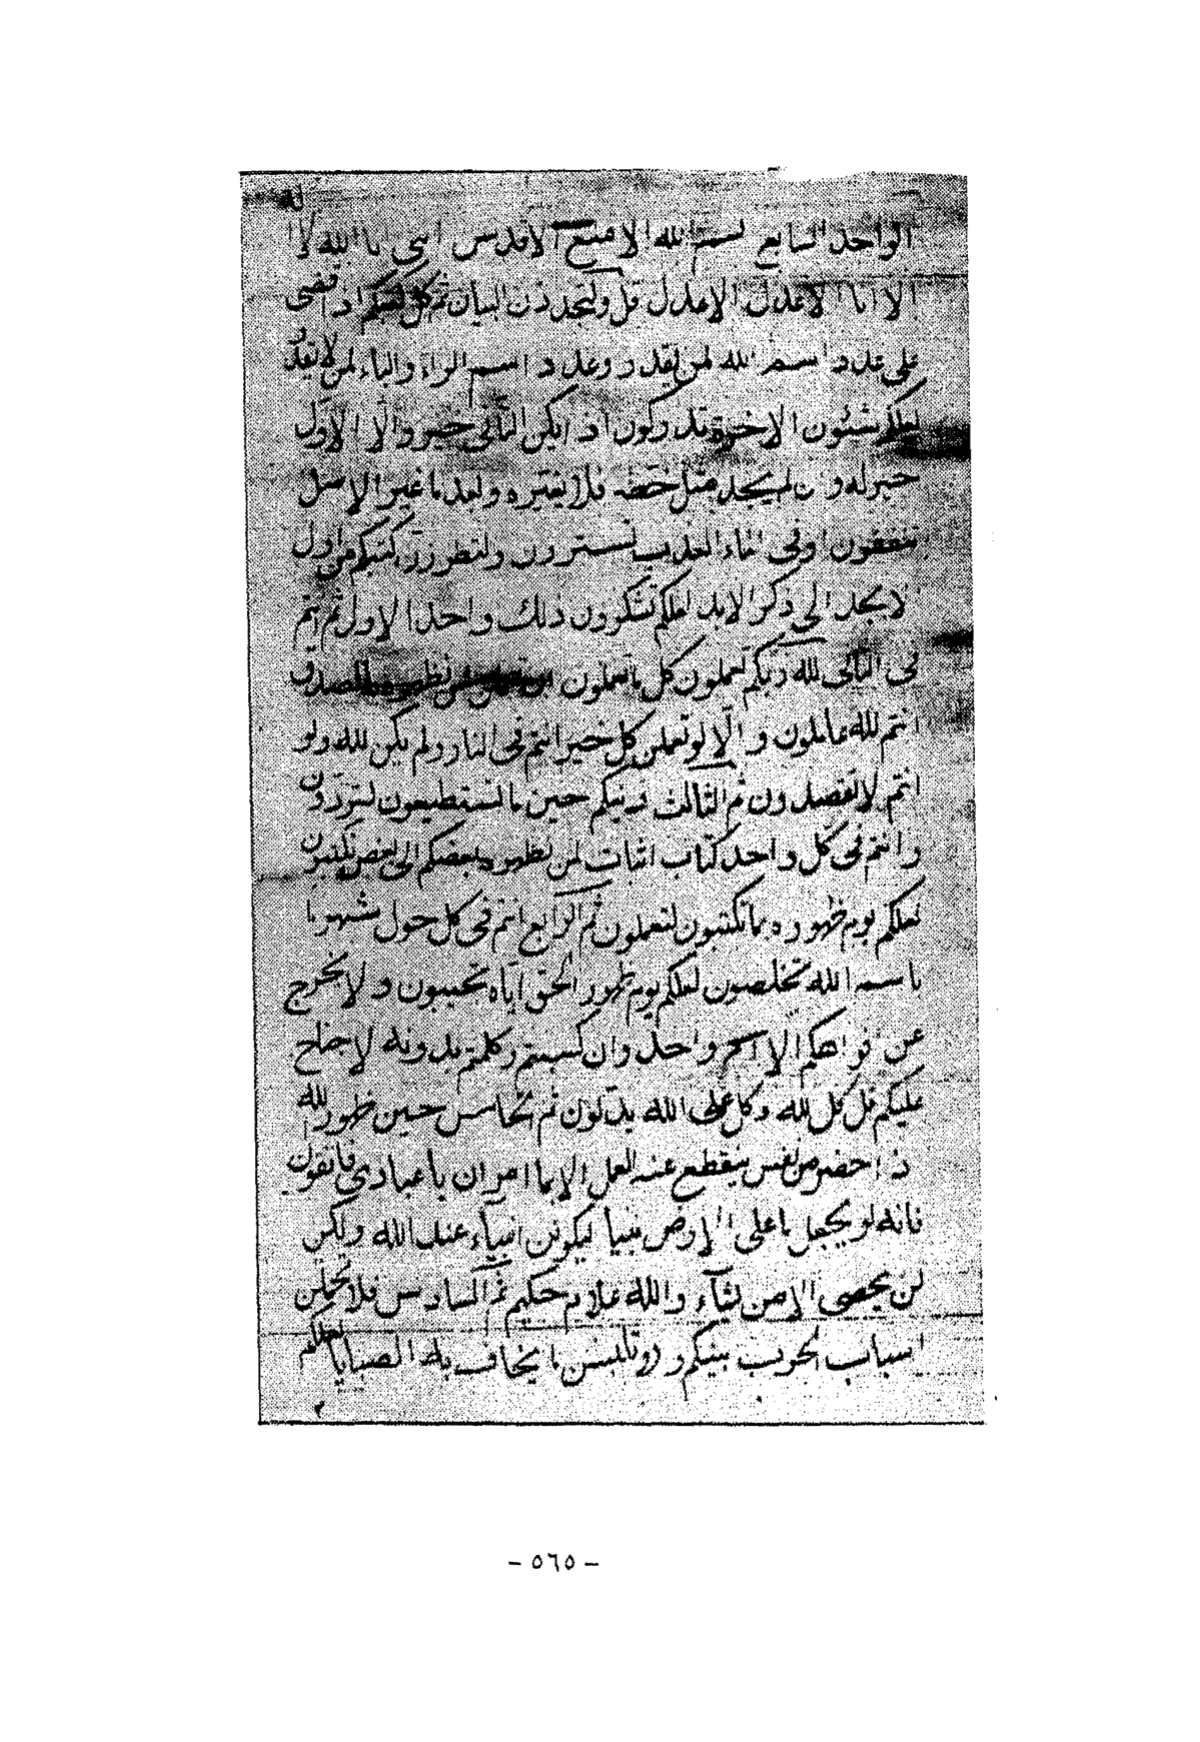 الواحد السابع بسم الله الامنع الاقدس انني انا الله لا اله
الا انا الاعدل الاعدل قل ولتجددن البيان ثم كل كتبكم اذ قضى
على عدد اسم الله لمن يقدر وعدد اسم الراء والباء لمن لا يقدر
لعلكم بشئون الاخرة تدركون اذ يكن الثاني خير والا الاول
خير له وان لم يجد مثل خطه فلا يغيره وبعد ما غير الاسبل
تنفقون او في الماء العذب تسترون ولتطرزن كتبكم من اول
لا بجد الى ذكر الابد لعلكم تشكرون ذلك واحد الاول ثم انتم
في الثاني لله ربكم تعملون كل ما تعملون من يظهره الصدق
انتم لله عاملون والا لو تعملن كل خير انتم في النار ولم يكن لله ولو
انتم لا تقصدون ثم الثالث دينكم حين ما تستطيعون لتردون
وانتم في كل واحد كتاب اثبات لمن نظهره بعضكم الى بعض تكتبون
لعلكم يوم ظهوره بما تكتبون لتعملون ثم الرابع انتم في كل حول شهر ا
باسم الله تخلصون لعلكم يوم ظهور الحق اياه تجيبون ولا يخرج
عن افواهكم الا اسم واحد وان كسبتم وكلمتم بدونه لا جناح
عليكم قل كل لله وكل على الله يدلون ثم الخامس حين ظهور الله
اذا حضر من نفس ينقطع عنه العمل الا بما امر ان يا عبادي فاتقون
فانه لو يجعل ما على الارض نبيا ليكونن انبياء عند الله ولكن
لن يحصى الا من نشاء والله علام حكيم ثم السادس فلا تحملن
اسباب الحرب بينكم ولا تلبسن ما يخاف به الصبايا لعلكم
- ٥٦٥ -